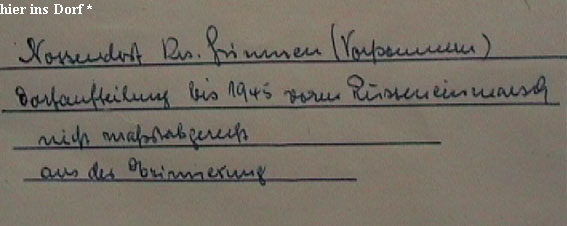 hier ins Dorf *
Nossendorf Krs. Grimmen (Vorpommern)
Dorfaufteilung bis 1945 vorm Russeneinmarsch
nicht maßstabgerecht
aus der Erinnerung